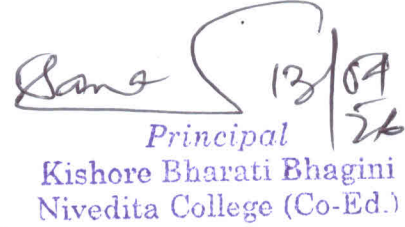 13/04
26
Principal
Kishore Bharati Bhagini
Nivedita College (Co-Ed.)